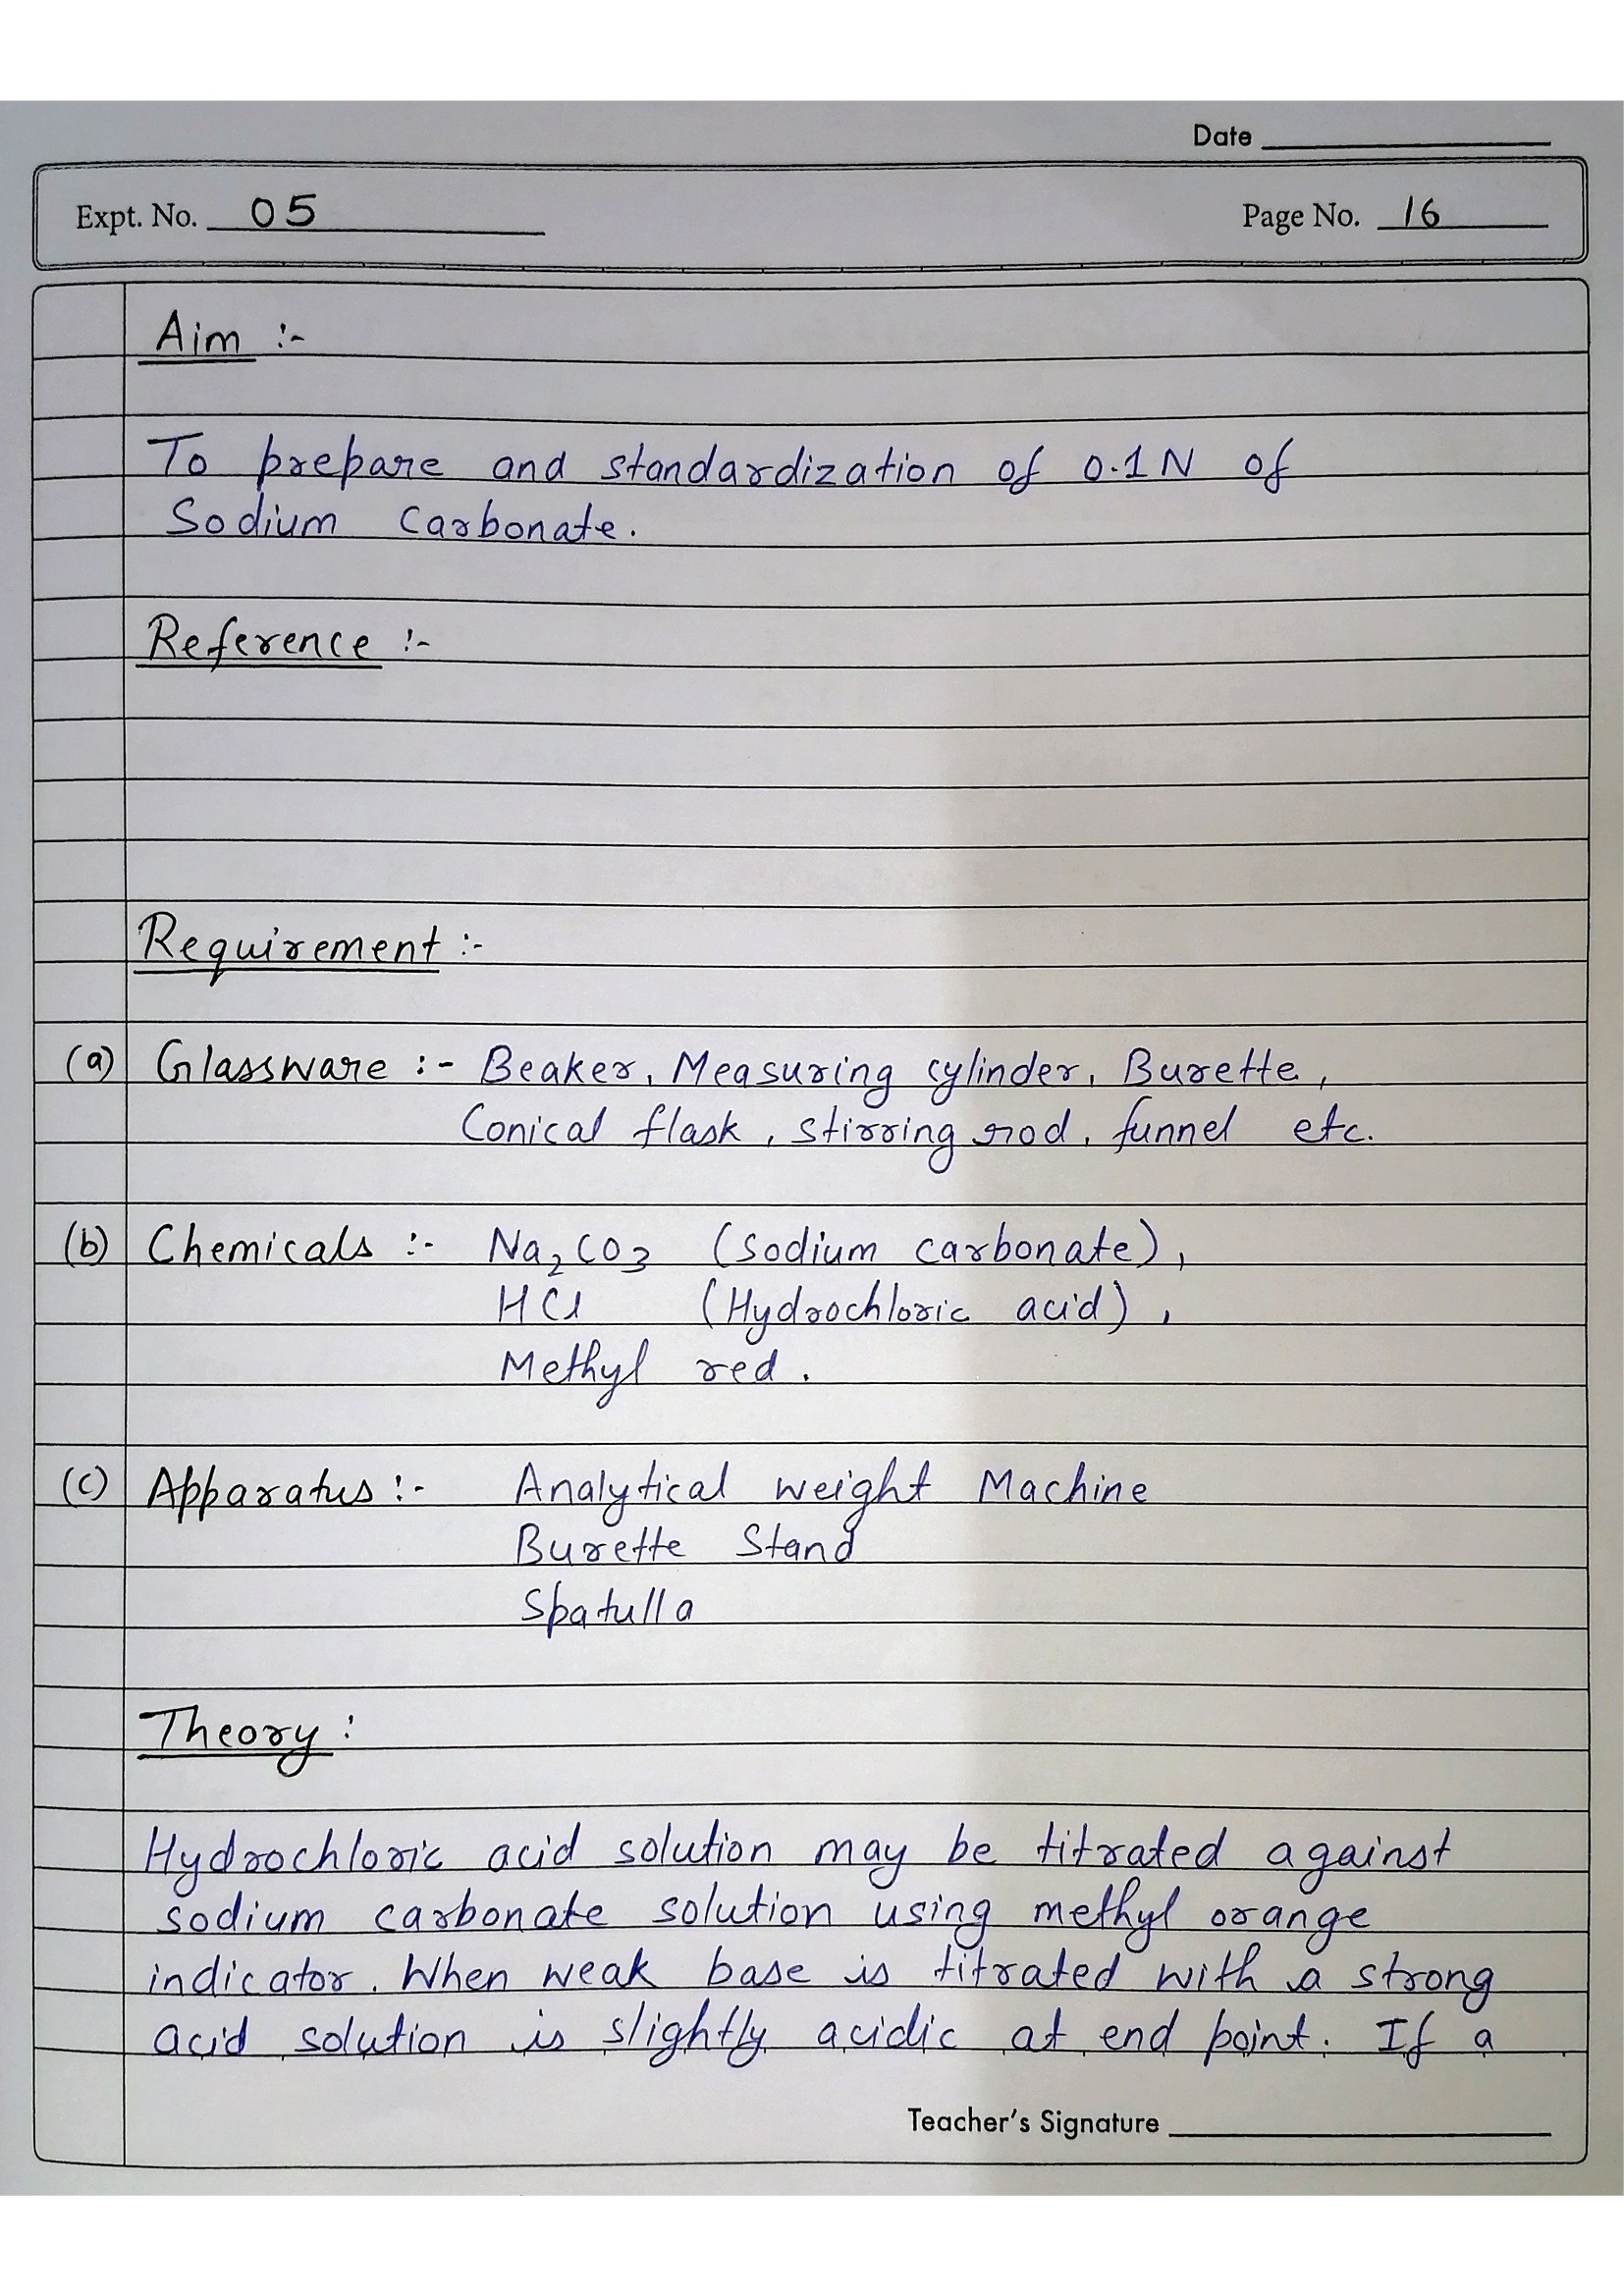 Date
Expt. No. 05
Page No. 16
Aim :-
To prepare and standardization of 0.1 N of
Sodium Carbonate.
Reference :-
Requirement :-
(a) Glassware :- Beaker, Measuring cylinder, Burette,
Conical flask, stirring rod, funnel etc.
(b) Chemicals :- Na₂CO₃ (Sodium carbonate),
HCl (Hydrochloric acid),
Methyl red.
(c) Apparatus :- Analytical weight Machine
Burette Stand
Spatulla
Theory :
Hydrochloric acid solution may be titrated against
sodium carbonate solution using methyl orange
indicator. When weak base is titrated with a strong
acid solution is slightly acidic at end point. If a
Teacher's Signature